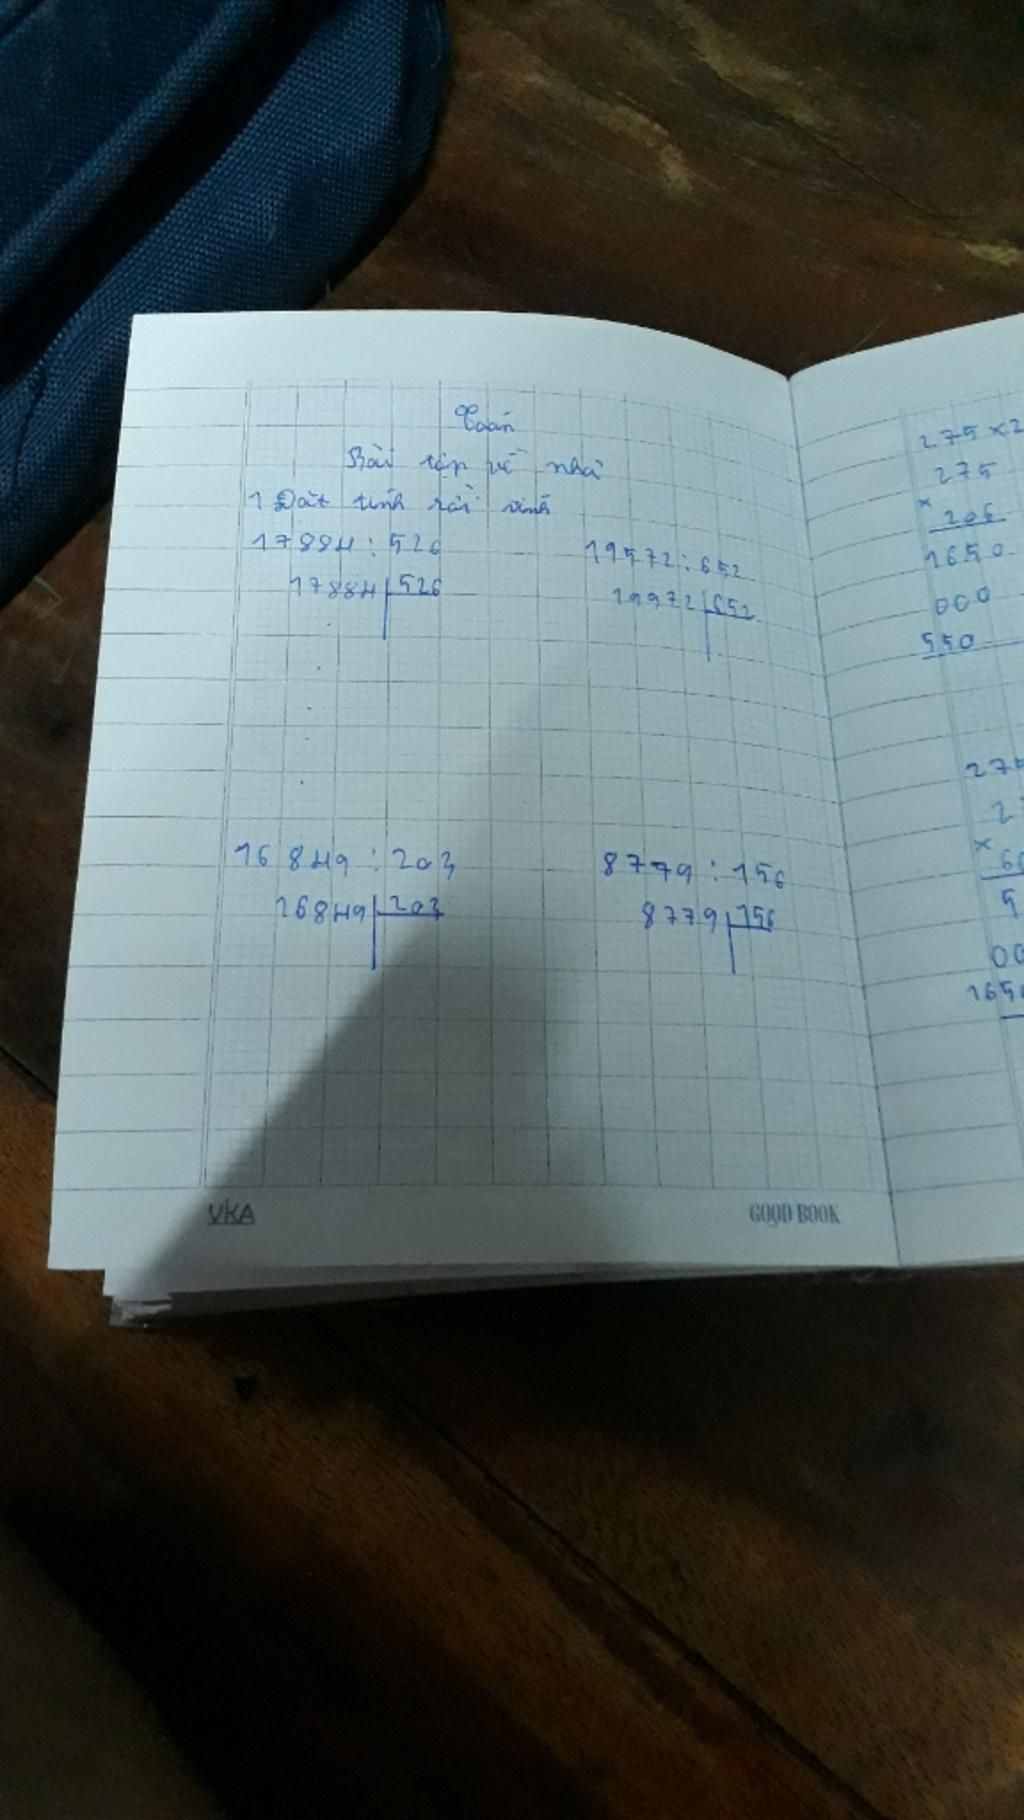 Toán
Bài tập về nhà
1 Đặt tính rồi tính
17884 : 526
19572 : 652
17884 526
19972 652
16849 : 203
8779 : 156
16849 203
8779 156
VKA
GOOD BOOK
275 x 2
275
x
206
1650
000
550
275
2
x
60
5
00
165